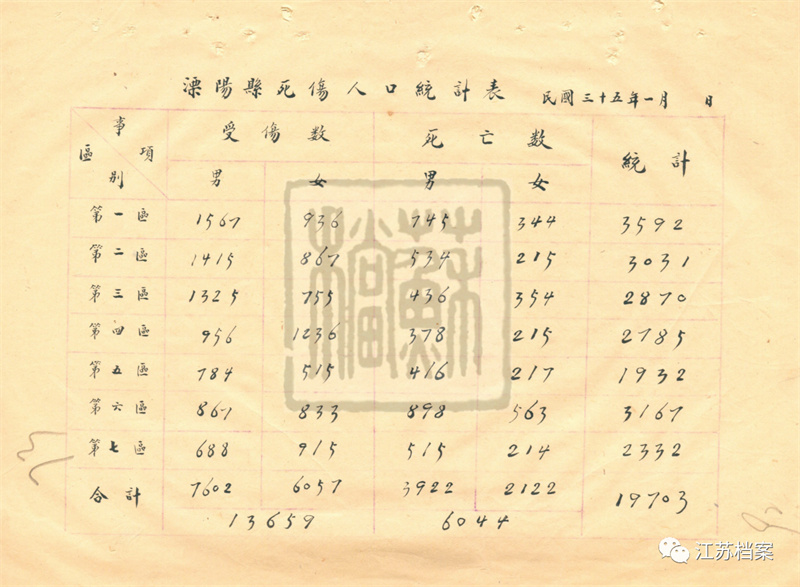 溧陽縣死傷人口統計表 民國三十五年一月 日
事項 區別 受傷数 死亡数 統計
男 女 男 女
第一區 1567 936 745 344 3592
第二區 1415 867 534 215 3031
第三區 1325 755 436 354 2870
第四區 956 1236 378 215 2785
第五區 784 515 416 217 1932
第六區 867 833 898 563 3167
第七區 688 915 515 214 2332
合計 7602 6057 3922 2122 19703
13659 6044
江苏档案